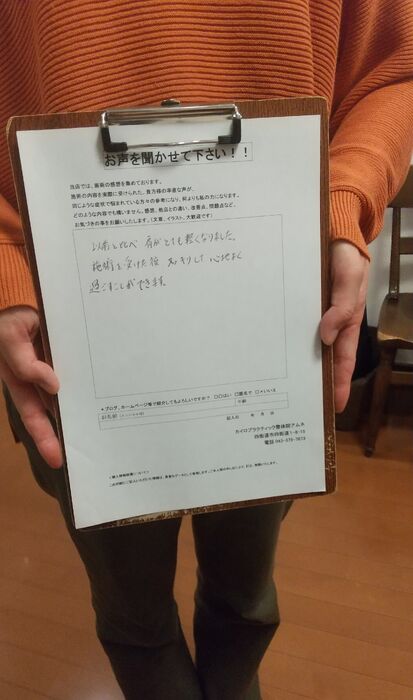 お声を聞かせて下さい！！
当店では、施術の感想を集めております。
施術の内容を実際に受けられた、貴方様の率直な声が、
同じような症状で悩まれている方々の参考になり、何よりも私の力になります。
どのような内容でも構いません。感想、他店との違い、改善点、問題点など、
お気づきの事をお願いいたします。（文章、イラスト、大歓迎です）
以前と比べ 肩がとても軽くなりました。
施術を受けた後 スッキリして 心地よく
過ごすことができます。
＊ブログ、ホームページ等で紹介してもよろしいですか？ □はい □匿名で □いいえ
お名前 年齢
記入日 年 月 日
カイロプラクティック整体院アムネ
四街道市四街道1-8-15